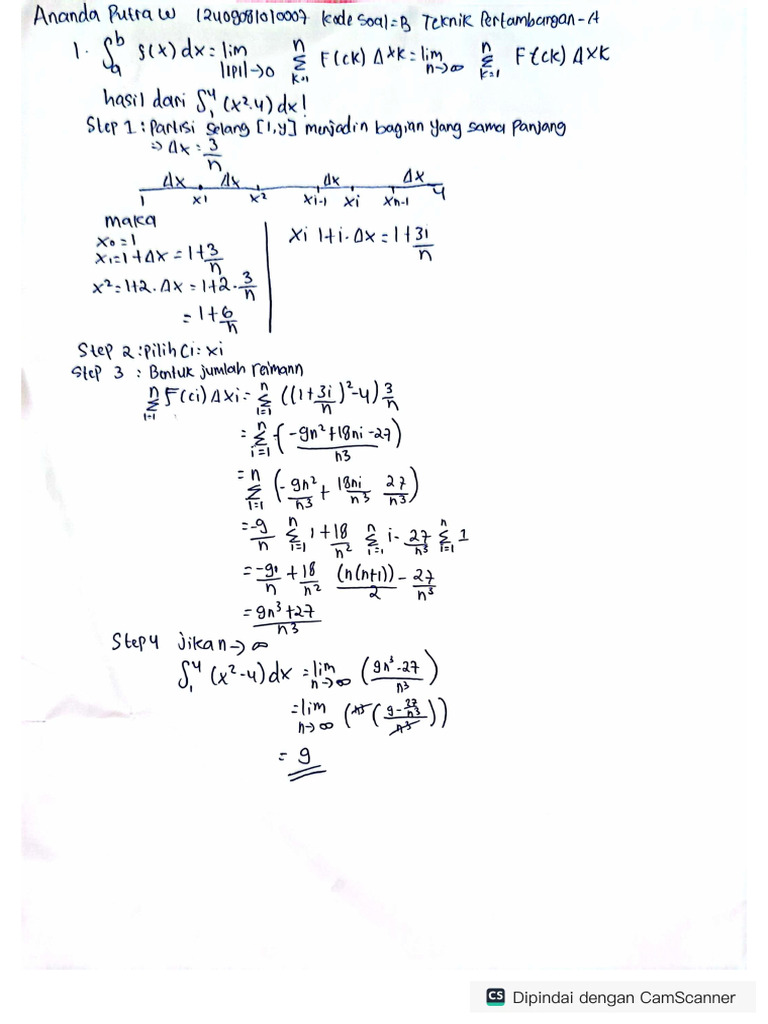 Ananda Putra W 124090810100007 Kode Soal = B Teknik Pertambangan - A
1. ∫ₐᵇ f(x) dx = lim ||P||→0 Σ n k=1 F(ck) Δxk = lim n→∞ Σ n k=1 F(ck) Δxk
hasil dari ∫₁⁴ (x²-4) dx!
Step 1 : Partisi Selang [1,4] menjadi n bagian yang sama Panjang
⇒ Δx = 3/n
Δx Δx Δx Δx
1 x1 x2 xi-1 xi xn-1 4
maka
x₀ = 1
x₁ = 1 + Δx = 1 + 3/n
x² = 1+2.Δx = 1+2.3/n
= 1 + 6/n
xi 1+i.Δx = 1 + 3i/n
Step 2 : Pilih Ci = xi
Step 3 : Bentuk jumlah reimann
Σ n i=1 F(ci) Δxi = Σ n i=1 ((1+3i/n)²-4) 3/n
= Σ n i=1 (-9n²+18ni-27)/n3
= Σ n i=1 (-9n²/n3 + 18ni/n3 27/n3)
= -9/n Σ n i=1 1 + 18/n² Σ n i=1 i - 27/n3 Σ n i=1 1
= -9/n + 18/n² (n(n+1))/2 - 27/n3
= 9n3+27/n3
Step 4 Jika n→∞
∫₁⁴ (x²-4) dx = lim n→∞ (9n3-27/n3)
= lim n→∞ (n3(9-27/n3)/n3)
= 9
CS Dipindai dengan CamScanner